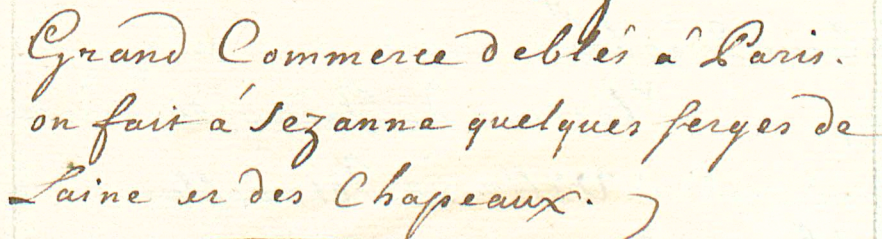 Grand Commerce de blés à Paris.
on fait à Sezanne quelques serges de
Laine et des Chapeaux.